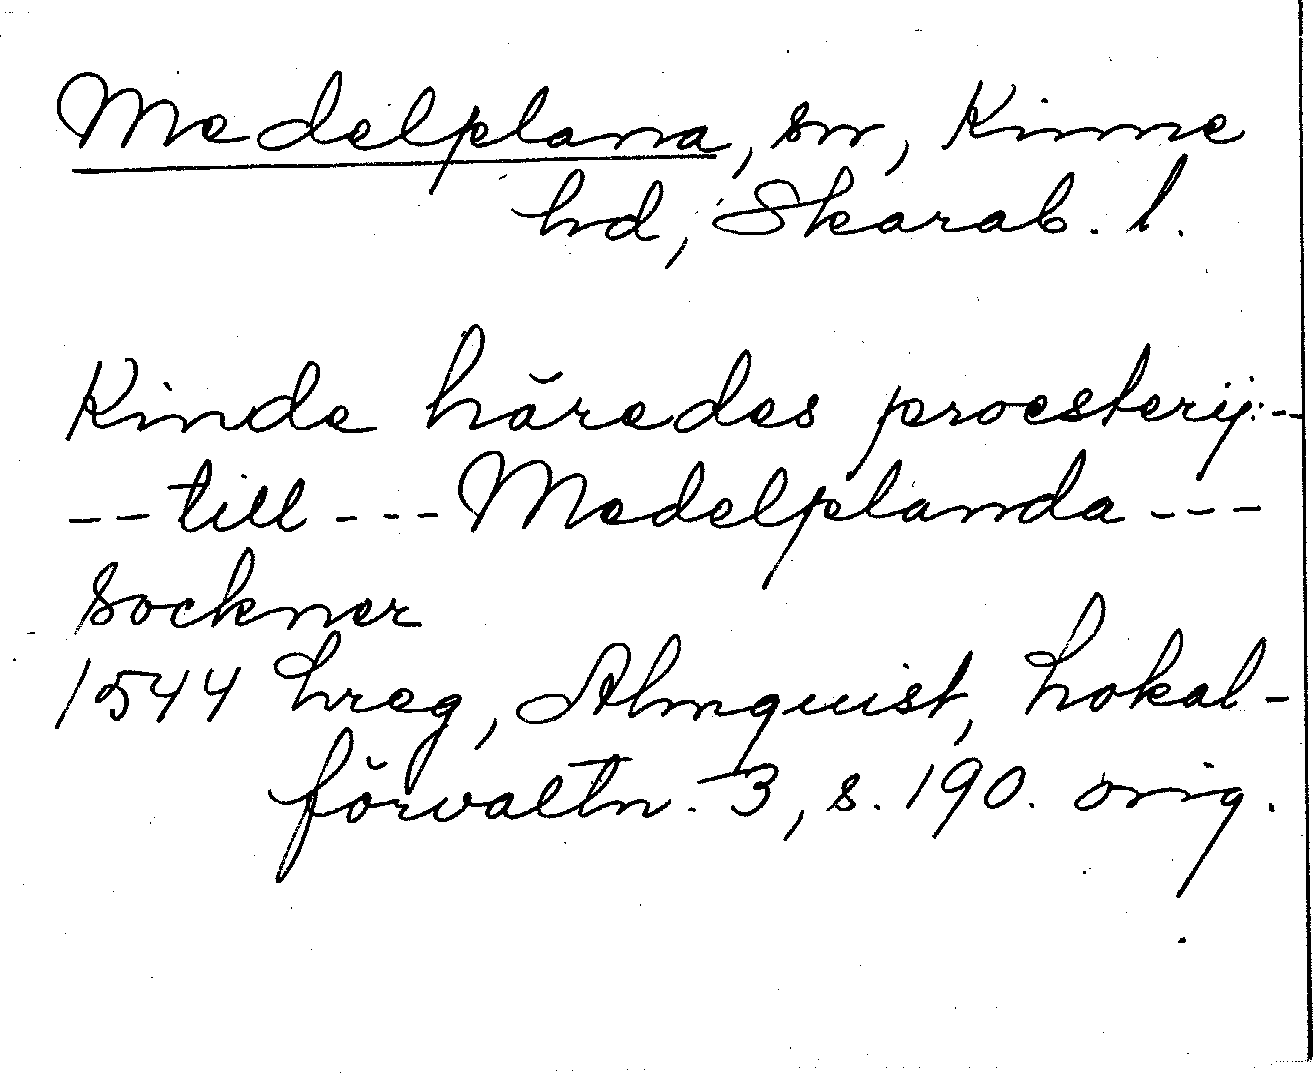 Medelplana, sn, Kinne
hd, Skarab. l.
Kinde häredes proesterij:--
-- till --- Medelplanda ---
sockner
1544 hreg, Almquist, Lokal-
förvaltn. 3, s. 190. orig.